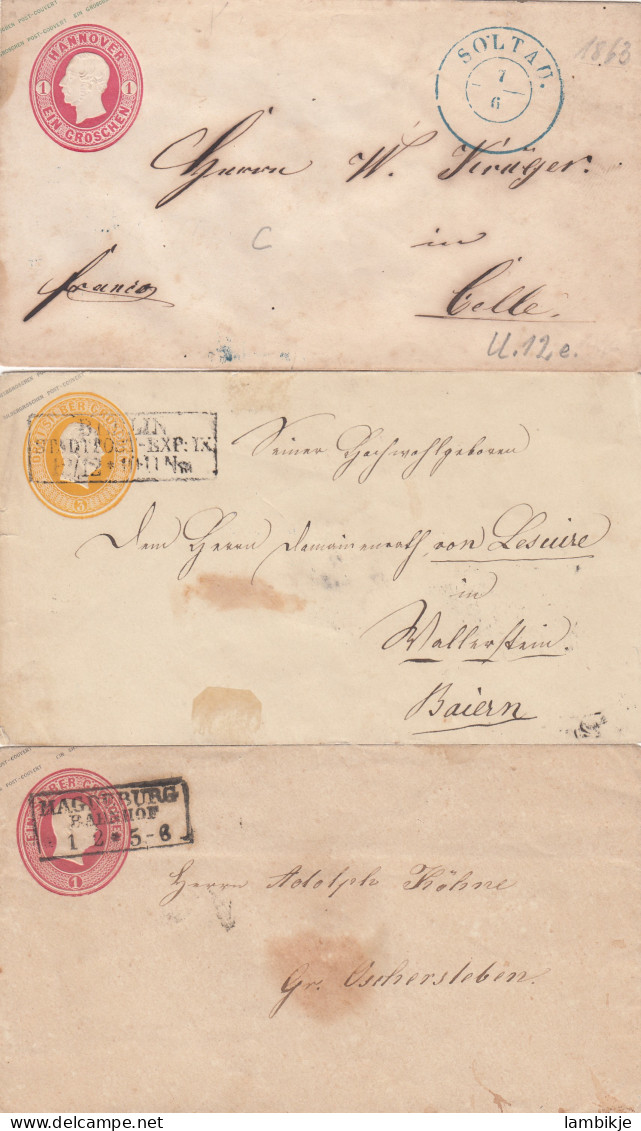 EIN GROSCHEN
POST-COUVERT
HANNOVER
1 1
EIN GROSCHEN
SOLTAU.
7
6
1863
Herrn W. Krüger.
C
in
franco
Celle.
U.12e.
BERLIN
STADTPOST-EXP: IX
12 * 10-11 Nm
3
Seiner Hochwohlgeboren
Dem Herrn Domainenrath von Lesuire
in
Wallerstein.
Baiern
POST-COUVERT
EIN
MAGDEBURG
BAHNHOF
1 2 * 5-6
1
Herrn Adolph Köhne
Gr. Oschersleben.
lambikje